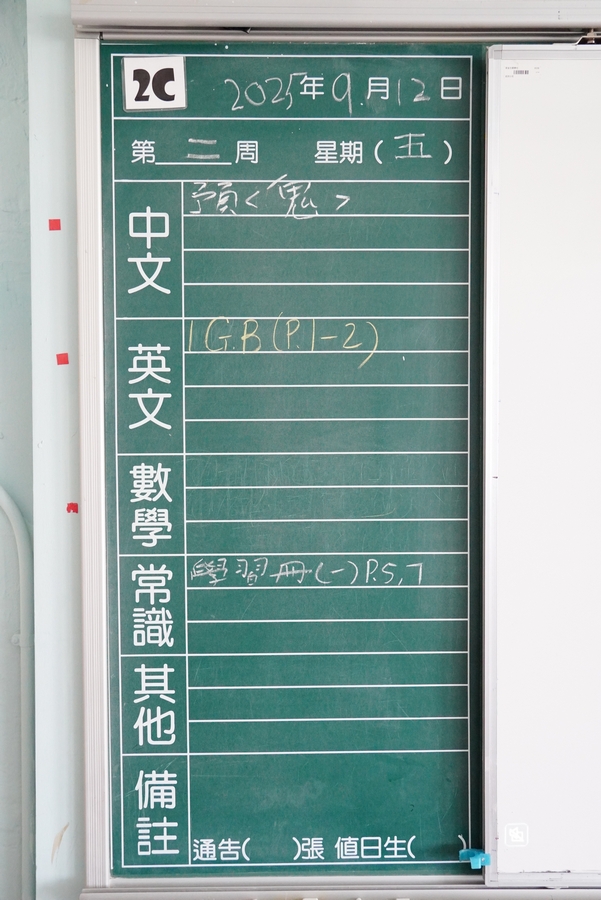 2C
2025年9月12日
第二周 星期(五)
中文
預<鬼>
英文
1 G.B (P.1-2)
數學
常識
學習冊(一)P.5,7
其他
備註
通告( )張 值日生( )